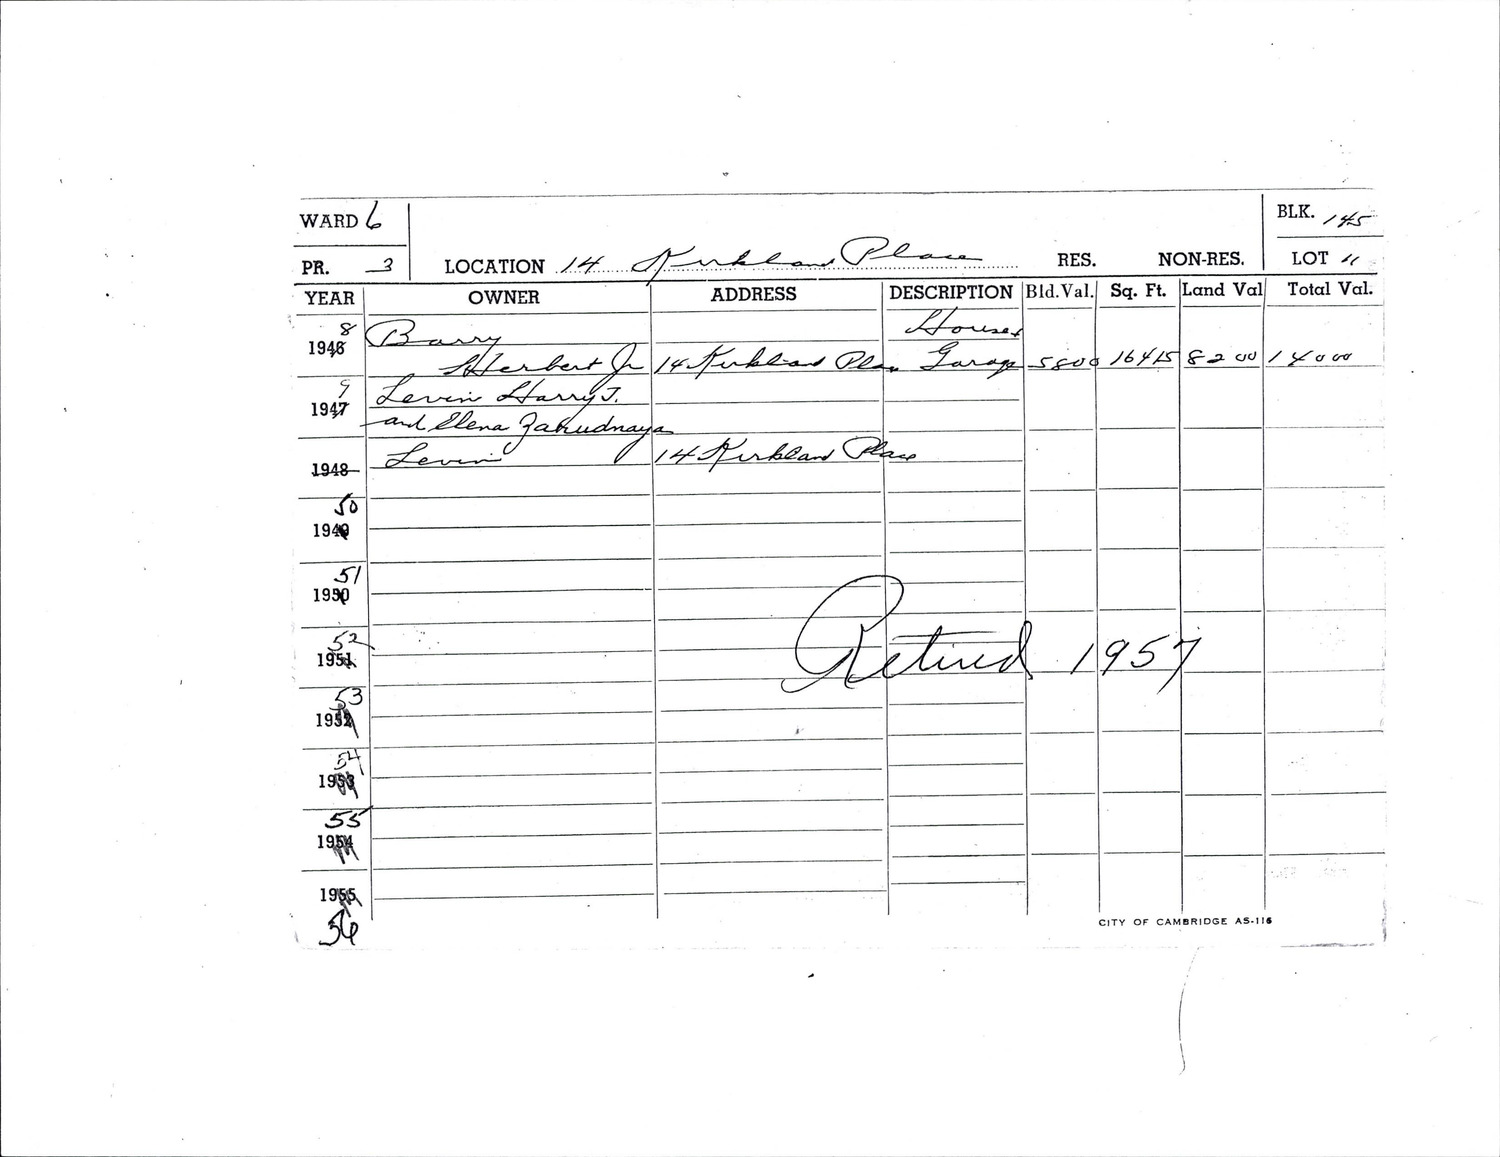 WARD 6 BLK. 145
PR. 3 LOCATION 14 Kirkland Place RES. NON-RES. LOT 11
YEAR OWNER ADDRESS DESCRIPTION Bld.Val. Sq. Ft. Land Val Total Val.
8 Barry House &
1946 Herbert Jr 14 Kirkland Place Garage 5800 16415 8200 14000
9 Levin Harry T.
1947 and Elena Zahudnaya
1948 Levin 14 Kirkland Place
50
1949
51
1950
52
1951 Retired 1957
53
1952
54
1953
55
1954
1955
56
CITY OF CAMBRIDGE AS-116